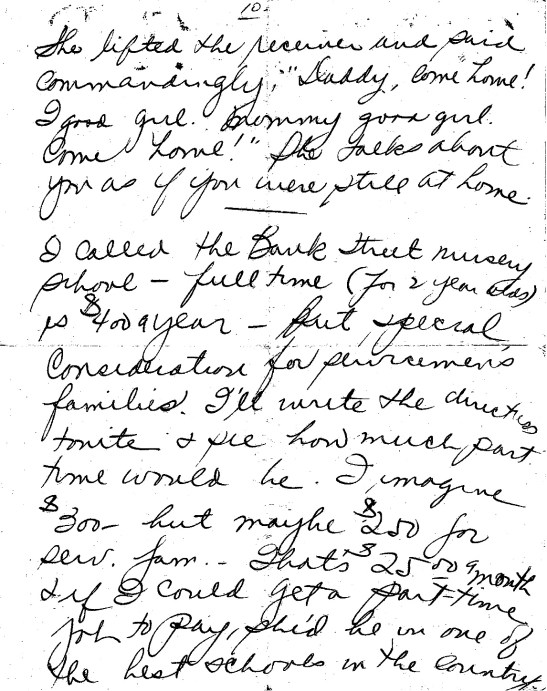 10
She lifted the receiver and said
commandingly, "Daddy, come home!
I good girl. Mommy good girl.
Come home!" She talks about
you as if you were still at home.
I called the Bank Street nursery
school - full time (for 2 year olds)
is $400 a year - But, special
consideration for servicemen's
families. I'll write the directress
tonite & see how much part
time would be. I imagine
$300- but maybe $250 for
serv. fam. - That's $25.00 a month
& if I could get a part-time
job to pay, she'd be in one of
the best schools in the country.